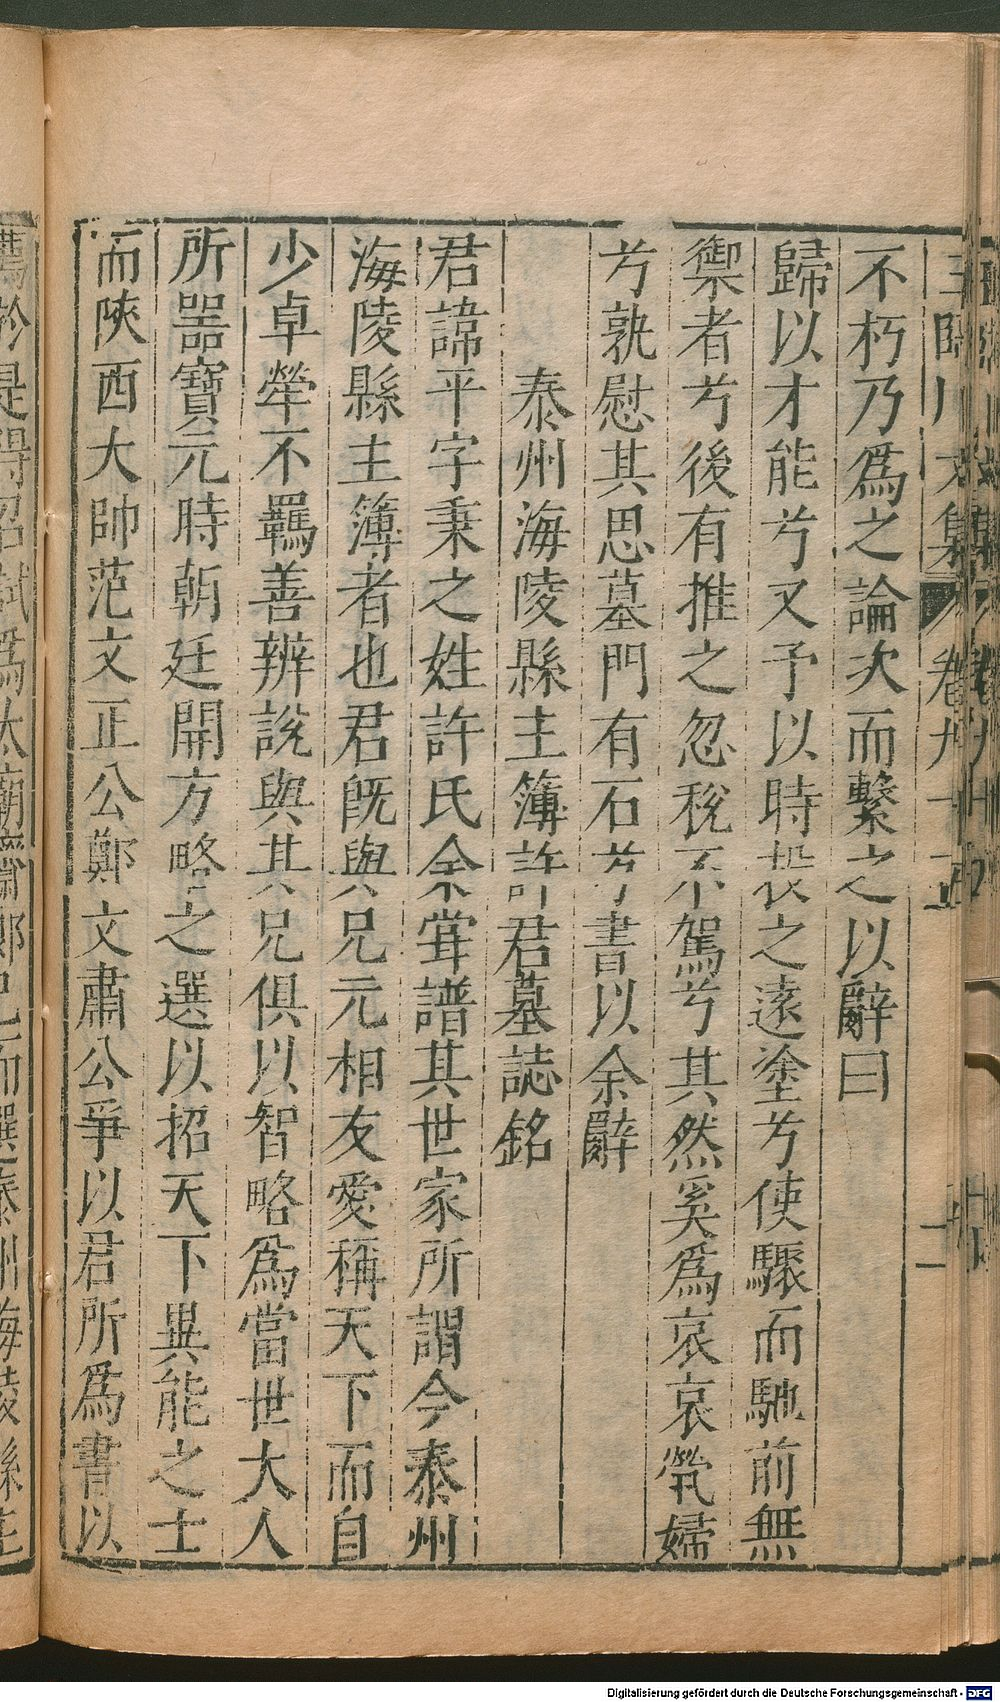 王臨川文集 卷九十五 二
不朽乃爲之論次而繫之以辭曰
歸以才能兮又予以時投之遠塗兮使驟而馳前無
禦者兮後有推之忽稅不駕兮其然奚爲哀哀煢婦
兮孰慰其思墓門有石兮書以余辭
泰州海陵縣主簿許君墓誌銘
君諱平字秉之姓許氏余嘗譜其世家所謂今泰州
海陵縣主簿者也君旣與兄元相友愛稱天下而自
少卓犖不羈善辨說與其兄俱以智略爲當世大人
所噐寶元時朝廷開方略之選以招天下異能之士
而陝西大帥范文正公鄭文肅公爭以君所爲書以
薦於是得召試爲太廟齋郎已而選泰州海陵縣主
Digitalisierung gefördert durch die Deutsche Forschungsgemeinschaft - DFG